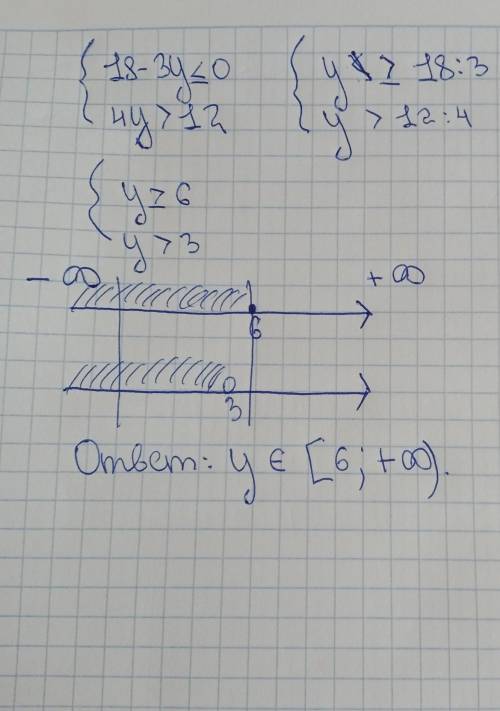 18-3y≤0 y ≥ 18:3
4y>12 y > 12:4
y≥6
y>3
-∞ +∞
6
3
Ответ: y ∈ [6; +∞).